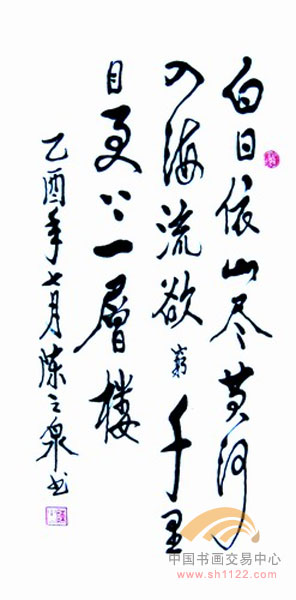 白日依山尽黄河
入海流欲穷千里
目更上一層楼
乙酉年七月陈之泉书
中国书画交易中心
www.sh1122.com